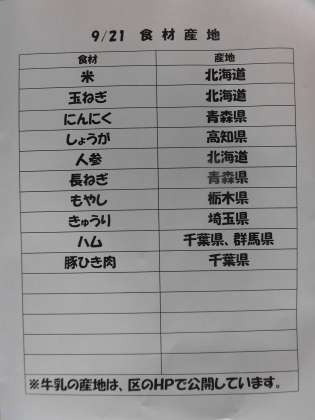 9/21 食材産地
食材 産地
米 北海道
玉ねぎ 北海道
にんにく 青森県
しょうが 高知県
人参 北海道
長ねぎ 青森県
もやし 栃木県
きゅうり 埼玉県
ハム 千葉県、群馬県
豚ひき肉 千葉県
※牛乳の産地は、区のHPで公開しています。